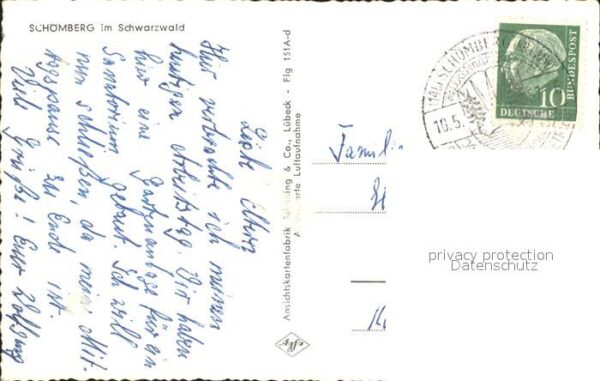 SCHÖMBERG im Schwarzwald
Liebe Eltern
Hier verbrachte ich meinen
heutigen Arbeitstag. Wir haben
hier eine Gartenanlage für ein
Sanatorium gebaut. Ich will
nun schließen, da meine Mit-
tagspause zu Ende ist.
Viele Grüße! Euer Wolfgang
Ansichtskartenfabrik Schöning & Co., Lübeck - Flg 151A-d
Luftaufnahme
Famili
SCHÖMBERG
10.5.
10
DEUTSCHE
BUNDESPOST
privacy protection
Datenschutz